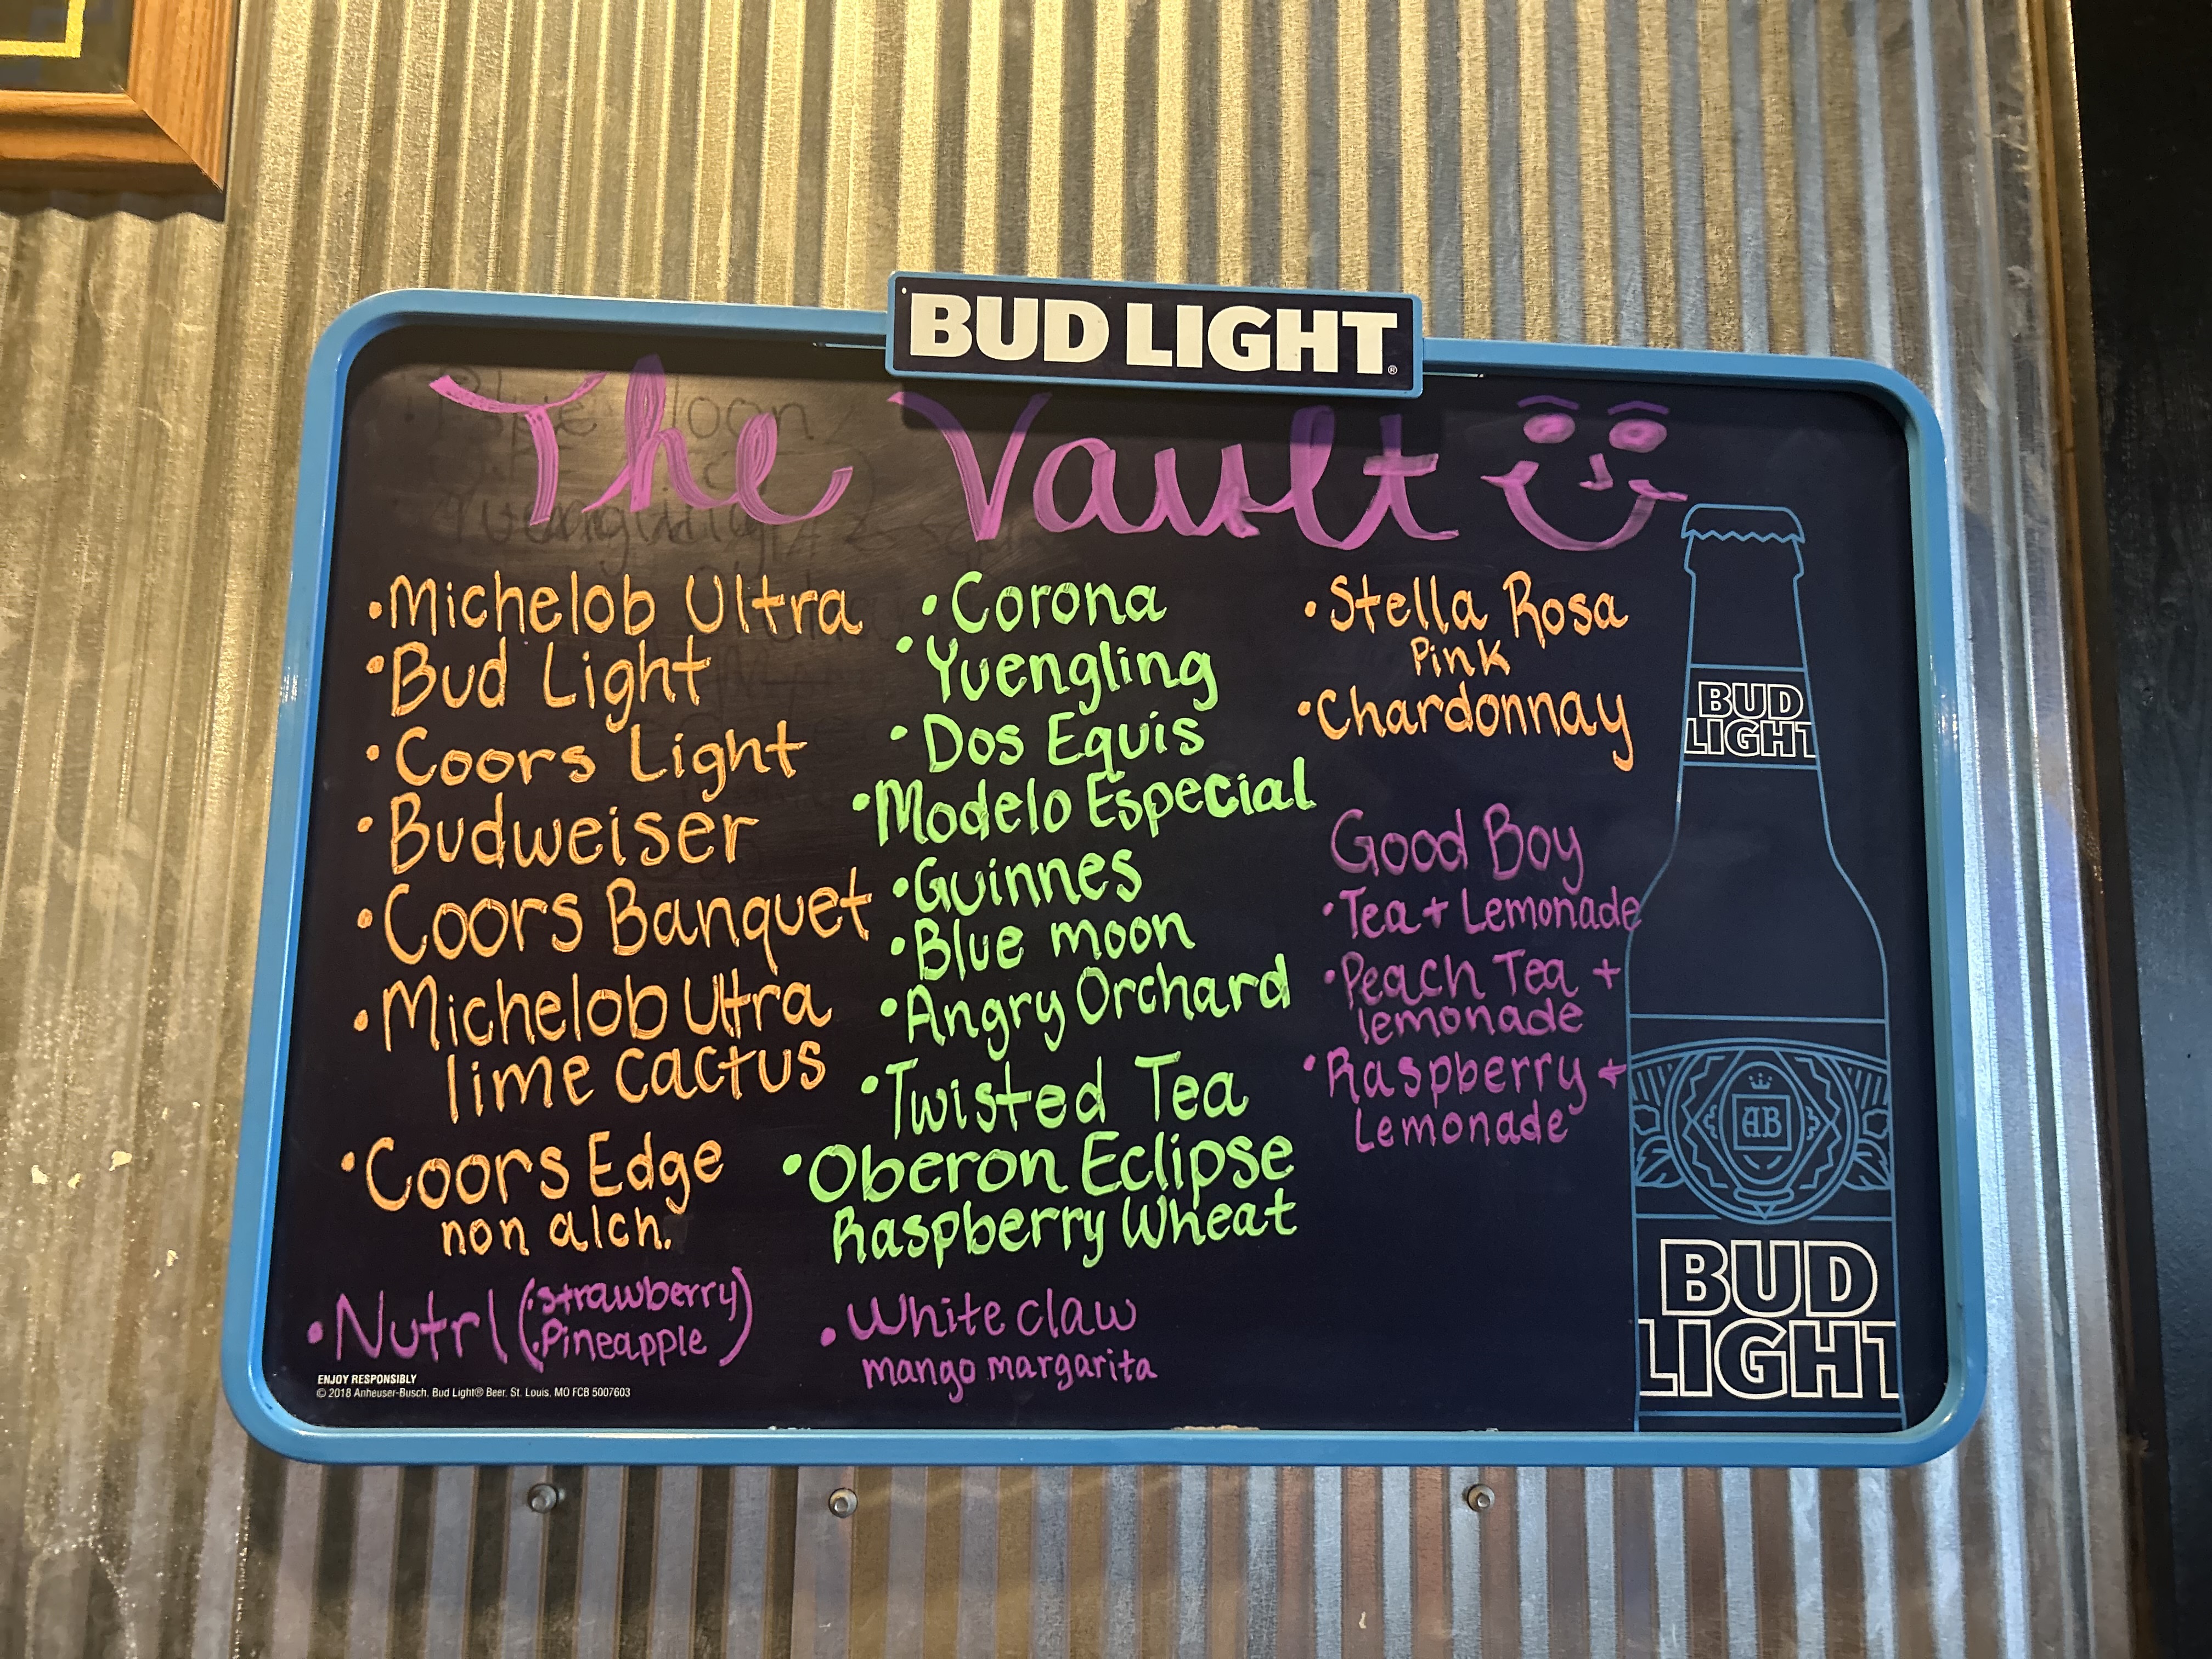 BUD LIGHT®
The Vault
• Michelob Ultra
• Bud Light
• Coors Light
• Budweiser
• Coors Banquet
• Michelob Ultra
lime cactus
• Coors Edge
non alch.
• Nutrl (• strawberry
• Pineapple)
• Corona
• Yuengling
• Dos Equis
• Modelo Especial
• Guinnes
• Blue moon
• Angry Orchard
• Twisted Tea
• Oberon Eclipse
Raspberry Wheat
• White claw
mango margarita
• Stella Rosa
Pink
• Chardonnay
Good Boy
• Tea + Lemonade
• Peach Tea +
lemonade
• Raspberry +
Lemonade
BUD
LIGHT
AB
BUD
LIGHT
ENJOY RESPONSIBLY
© 2018 Anheuser-Busch, Bud Light® Beer, St. Louis, MO FCB 5007603